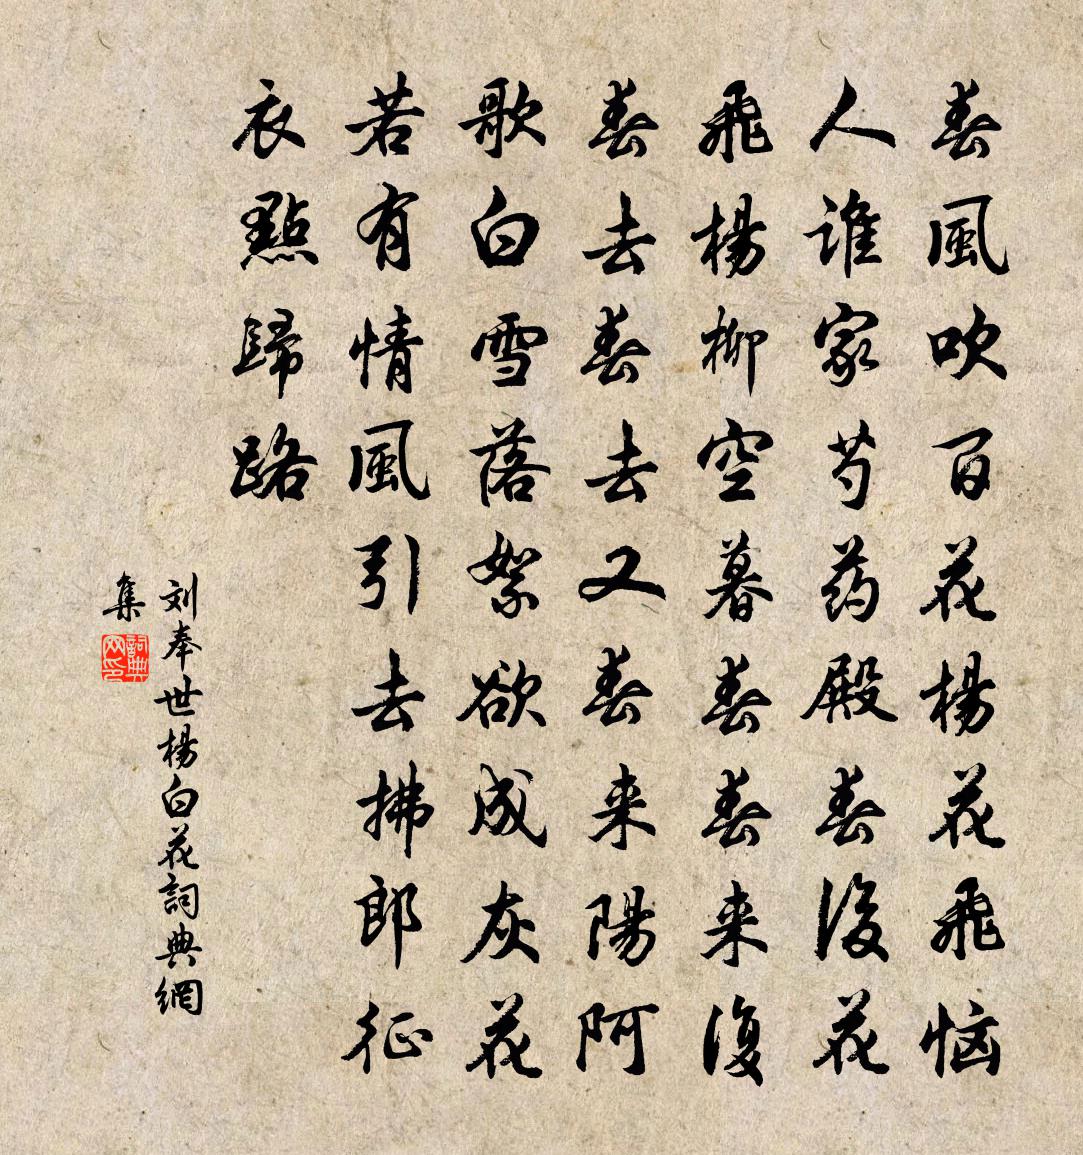 春風吹百花楊花飛恼
人誰家芍药殿春後花
飛楊柳空暮春春来復
春去春去又春来陽阿
歌白雪落絮欲成灰花
若有情風引去拂郎征
衣點歸路
刘奉世楊白花詞典網
集
詞典
网印